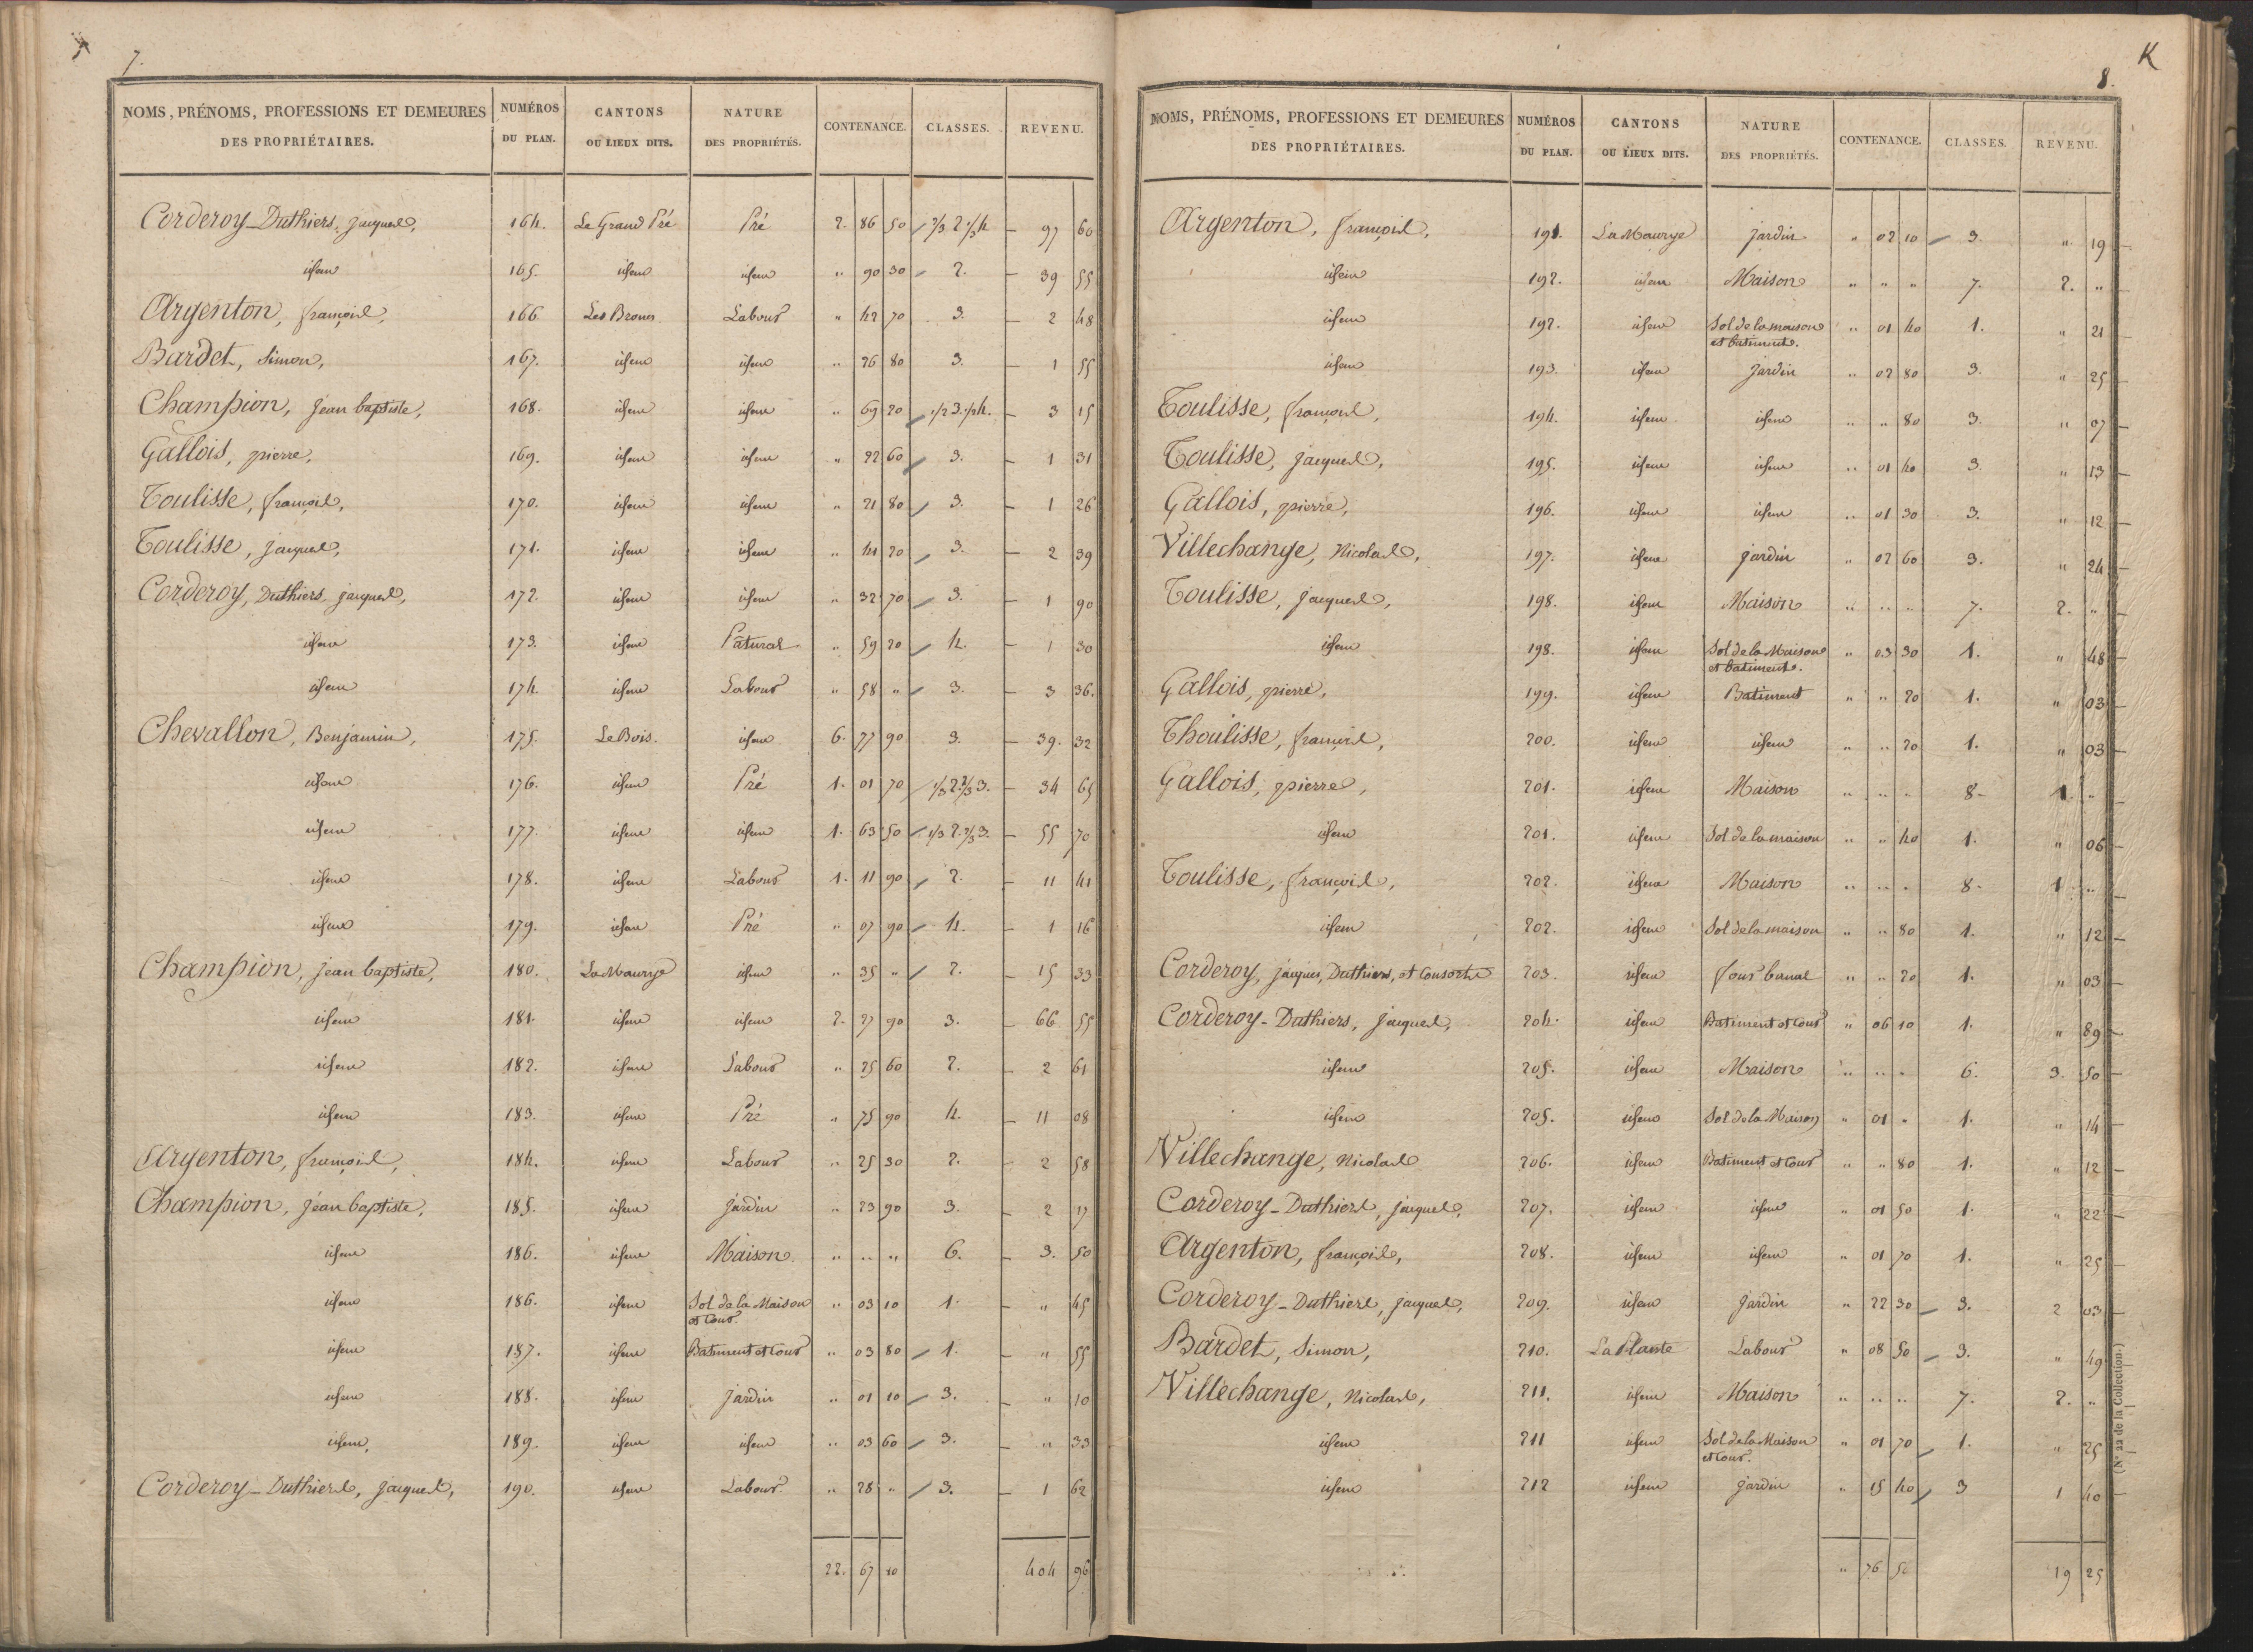 7.
NOMS, PRÉNOMS, PROFESSIONS ET DEMEURES DES PROPRIÉTAIRES. | NUMÉROS DU PLAN. | CANTONS OU LIEUX DITS. | NATURE DES PROPRIÉTÉS. | CONTENANCE. | CLASSES. | REVENU.
Corderoy-Duthiers, jacques, 164. Le Grand Pré Pré 2. 86 50 2/3 2. 1/3 4 97 60
idem 165. idem idem " 90 30 2. 39 55
Argenton, françois, 166 Les Brones Labour " 42 70 3. 2 48
Bardet, Simon, 167. idem idem " 26 80 3. 1 55
Champion, jean baptiste, 168. idem idem " 69 20 1/2 3. 1/2 4. 3 15
Gallois, pierre, 169. idem idem " 22 60 3. 1 31
Toulisse, françois, 170. idem idem " 21 80 3. 1 26
Toulisse, jacques, 171. idem idem " 41 20 3. 2 39
Corderoy, Duthiers, jacques, 172. idem idem " 32 70 3. 1 90
idem 173. idem Pâtural " 59 20 4. 1 30
idem 174. idem Labour " 58 " 3. 3 36.
Chevallon, Benjamin, 175. Le Bois. idem 6. 77 90 3. 39. 32
idem 176. idem Pré 1. 01 70 1/3 2. 2/3 3. 34 65
idem 177. idem idem 1. 63 50 1/3 2. 2/3 3. 55 70
idem 178. idem Labour 1. 11 90 2. 11 41
idem 179. idem Pré " 07 90 4. 1 16
Champion, jean baptiste, 180. La Maurye idem " 35 " 2. 15 33
idem 181. idem idem 2. 27 90 3. 66 55
idem 182. idem Labour " 25 60 2. 2 61
idem 183. idem Pré " 75 90 4. 11 08
Argenton, françois, 184. idem Labour " 25 30 2. 2 58
Champion, jean baptiste, 185. idem Jardin " 23 90 3. 2 17
idem 186. idem Maison " " " 6. 3. 50
idem 186. idem Sol de la Maison et Cour. " 03 10 1. " 45
idem 187. idem Batiment et Cour " 03 80 1. " 55
idem 188. idem jardin " 01 10 3. " 10
idem, 189. idem idem " 03 60 3. " 33
Corderoy-Duthiers, jacques, 190. idem Labour " 28 " 3. 1 62
22. 67 10 404 96
K
8.
NOMS, PRÉNOMS, PROFESSIONS ET DEMEURES DES PROPRIÉTAIRES. | NUMÉROS DU PLAN. | CANTONS OU LIEUX DITS. | NATURE DES PROPRIÉTÉS. | CONTENANCE. | CLASSES. | REVENU.
Argenton, françois, 191. La Maurye jardin " 02 10 3. " 19
idem 192. idem Maison " " " 7. 2. "
idem 192. idem Sol de la maison et batiment. " 01 40 1. " 21
idem 193. idem jardin " 02 80 3. " 25
Toulisse, françois, 194. idem idem " " 80 3. " 07
Toulisse, jacques, 195. idem idem " 01 40 3. " 13
Gallois, pierre, 196. idem idem " 01 30 3. " 12
Villechange, Nicolas, 197. idem jardin " 02 60 3. " 24
Toulisse, jacques, 198. idem Maison " " " 7. 2. "
idem 198. idem Sol de la Maison et batiment. " 03 30 1. " 48
Gallois, pierre, 199. idem Batiment " " 20 1. " 03
Thoulisse, françois, 200. idem idem " " 20 1. " 03
Gallois, pierre, 201. idem Maison " " " 8- 1. "
idem 201. idem Sol de la maison " " 40 1. " 06
Toulisse, françois, 202. idem Maison " " " 8. 1. "
idem 202. idem Sol de la maison " " 80 1. " 12
Corderoy, jacques, Duthiers, et Consorts 203. idem four banal " " 20 1. " 03
Corderoy-Duthiers, jacques, 204. idem Batiment et Cour " 06 10 1. " 89
idem 205. idem Maison " " " 6. 3. 50
idem 205. idem Sol de la Maison " 01 " 1. " 14
Villechange, Nicolas 206. idem Batiment et Cour " " 80 1. " 12
Corderoy-Duthiers, jacques, 207. idem idem " 01 50 1. " 22
Argenton, françois, 208. idem idem " 01 70 1. " 25
Corderoy-Duthiers, jacques, 209. idem Jardin " 22 30 3. 2 03
Bardet, Simon, 210. La Plante Labour " 08 50 3. " 49
Villechange, Nicolas, 211. idem Maison " " " 7. 2. "
idem 211 idem Sol de la Maison et Cour. " 01 70 1. " 25
idem 212 idem Jardin " 15 40 3 1 40
" 76 50 19 25
(N° 22 de la Collection.)